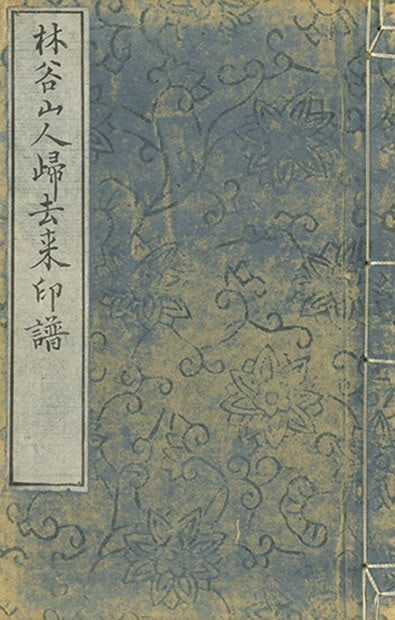 林谷山人歸去来印譜